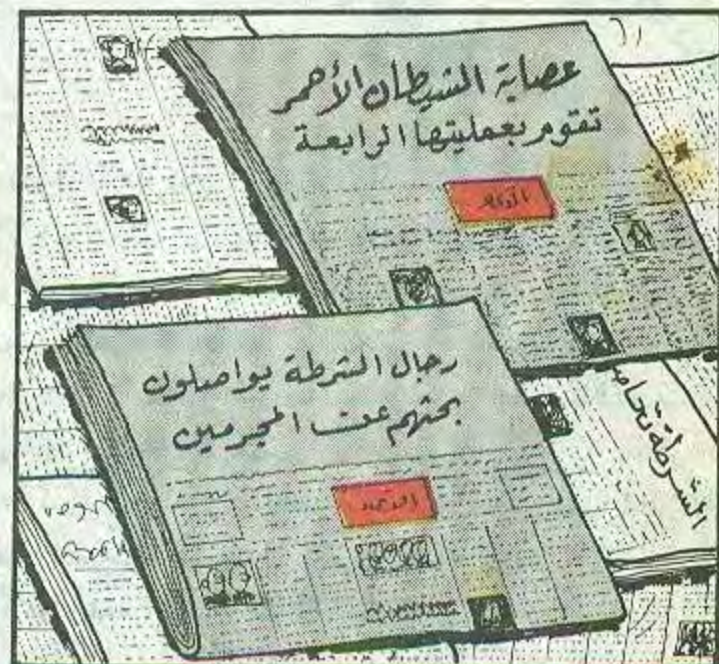 عصابة الشيطان الأحمر
تقوم بعمليتها الرابعة
رجال الشرطة يواصلون
بحثهم عن المجرمين
الشرطة تحاصر